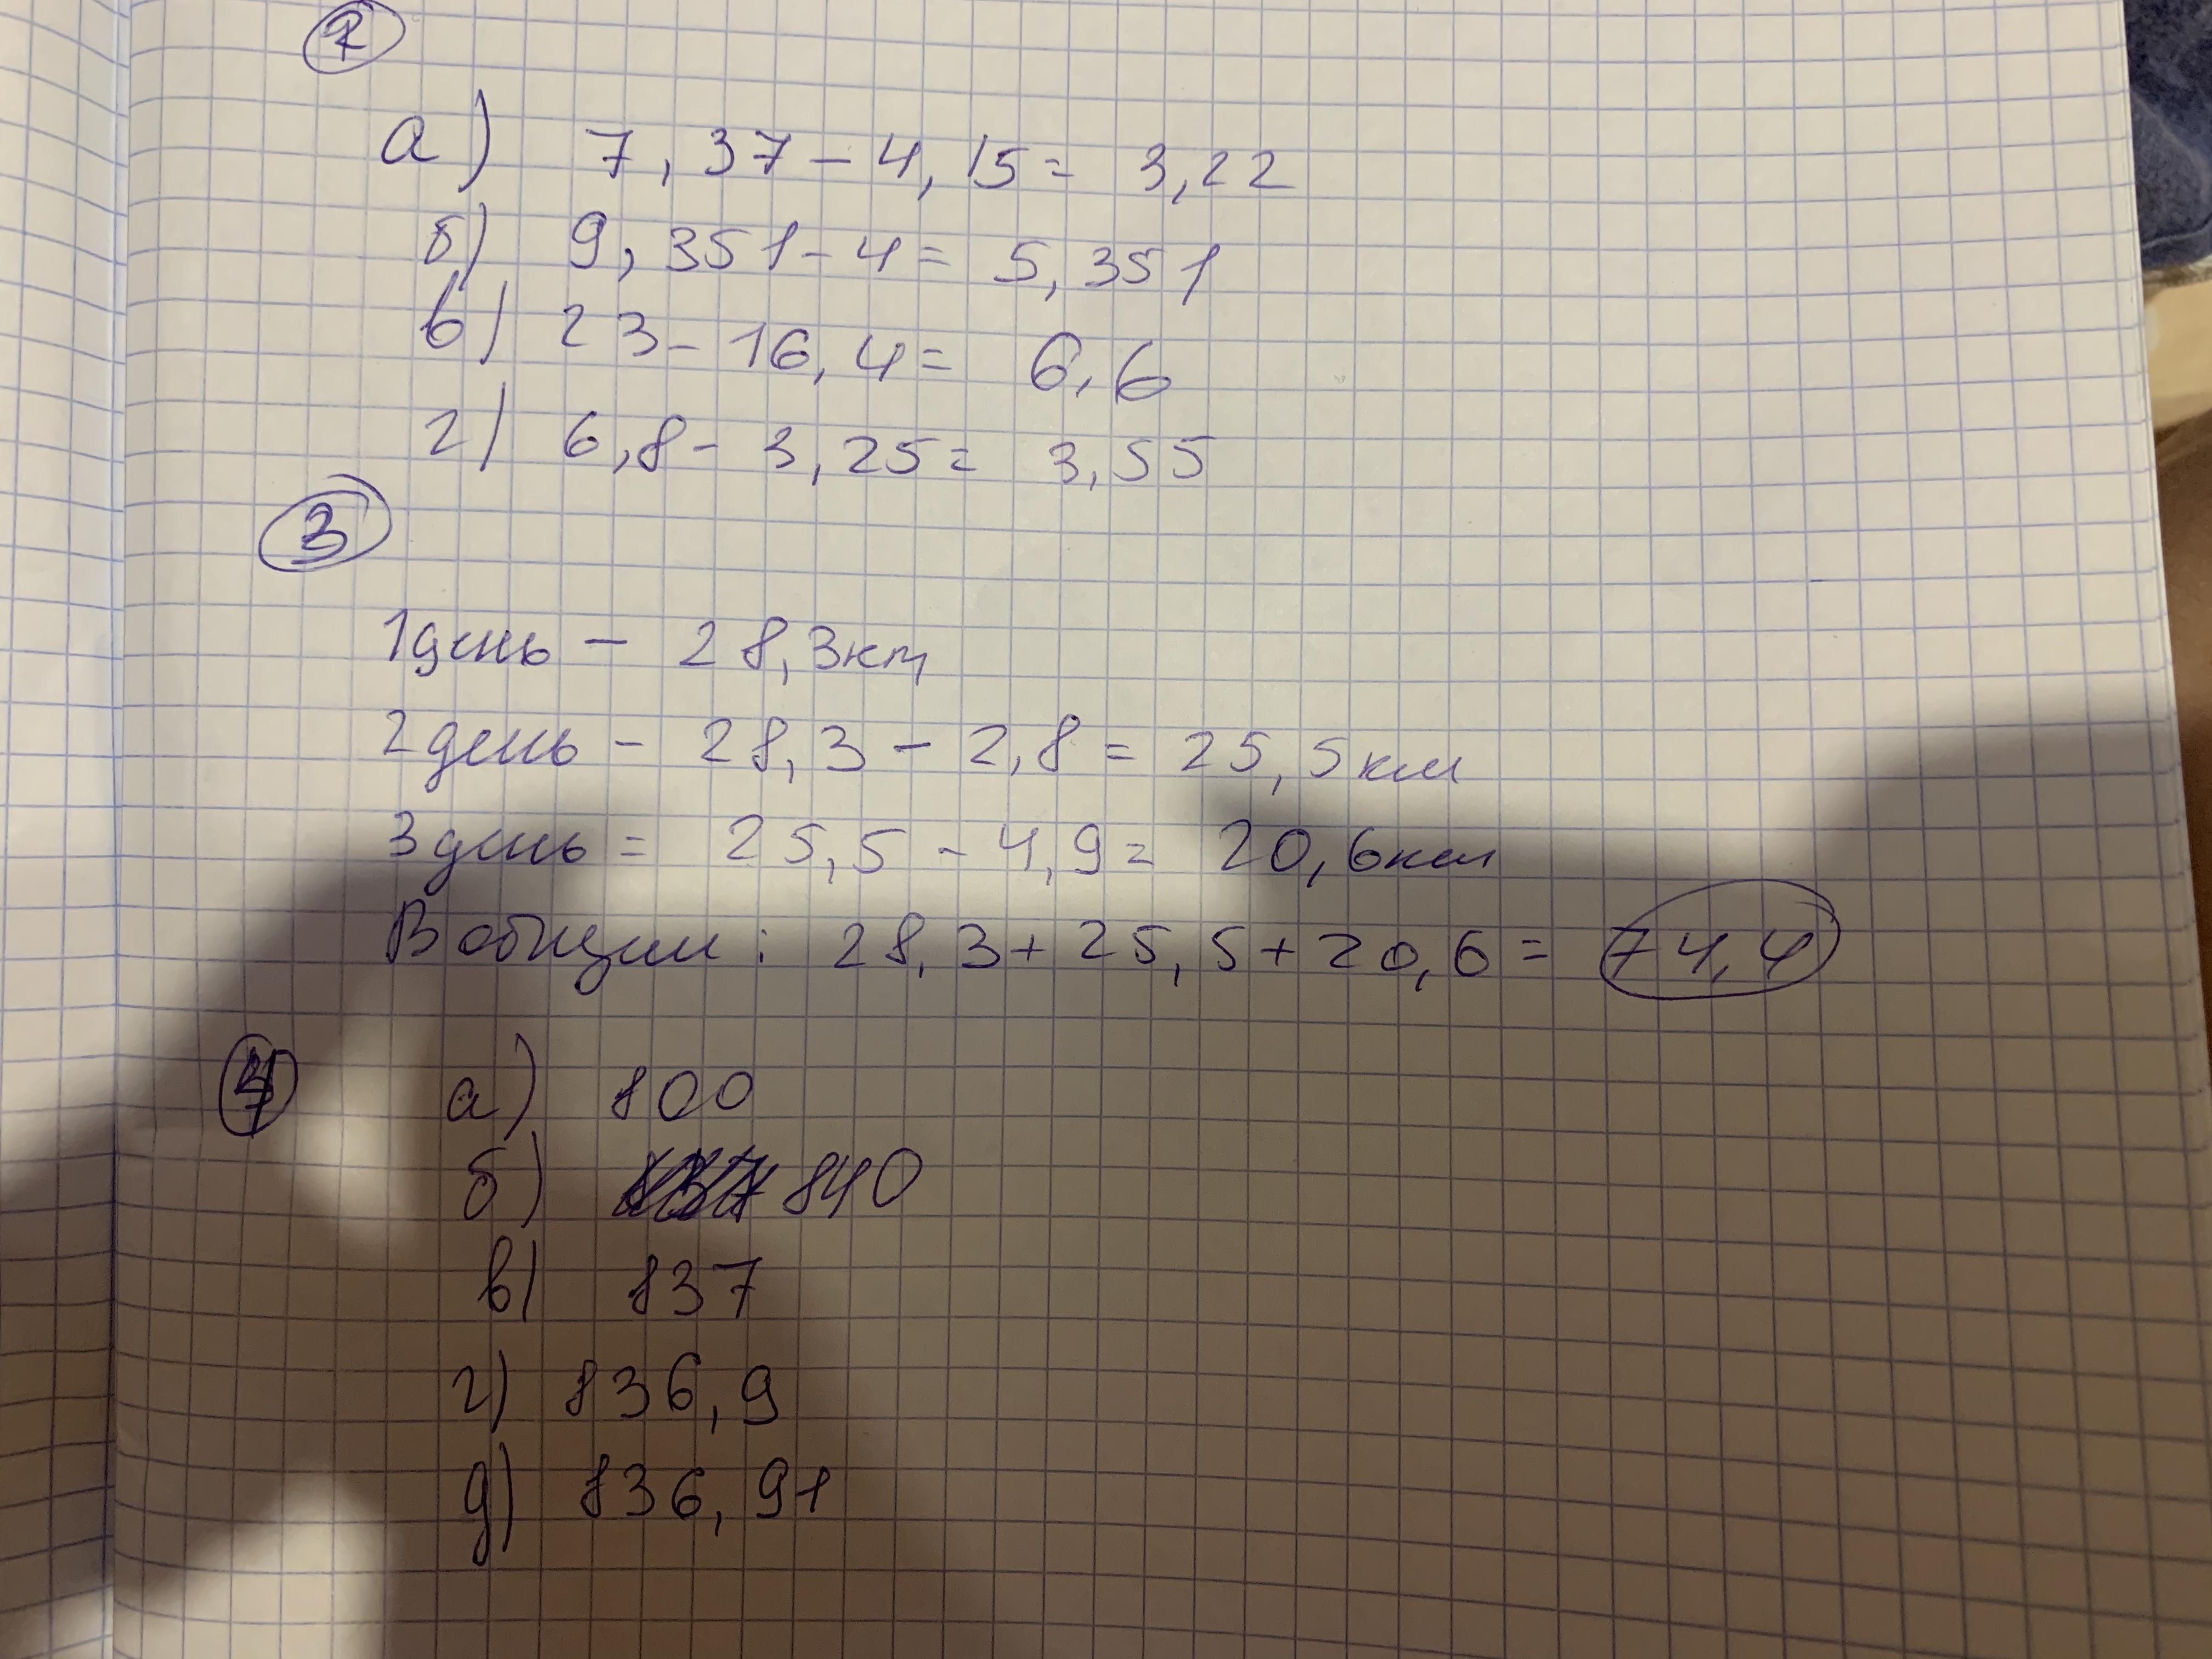 2
а) 7,37 - 4,15 = 3,22
б) 9,351 - 4 = 5,351
в) 23 - 16,4 = 6,6
г) 6,8 - 3,25 = 3,55
3
1 день - 28,3 км
2 день - 28,3 - 2,8 = 25,5 км
3 день = 25,5 - 4,9 = 20,6 км
В общим : 28,3 + 25,5 + 20,6 = 74,4
4
а) 800
б) 840
в) 837
г) 836,9
д) 836,91